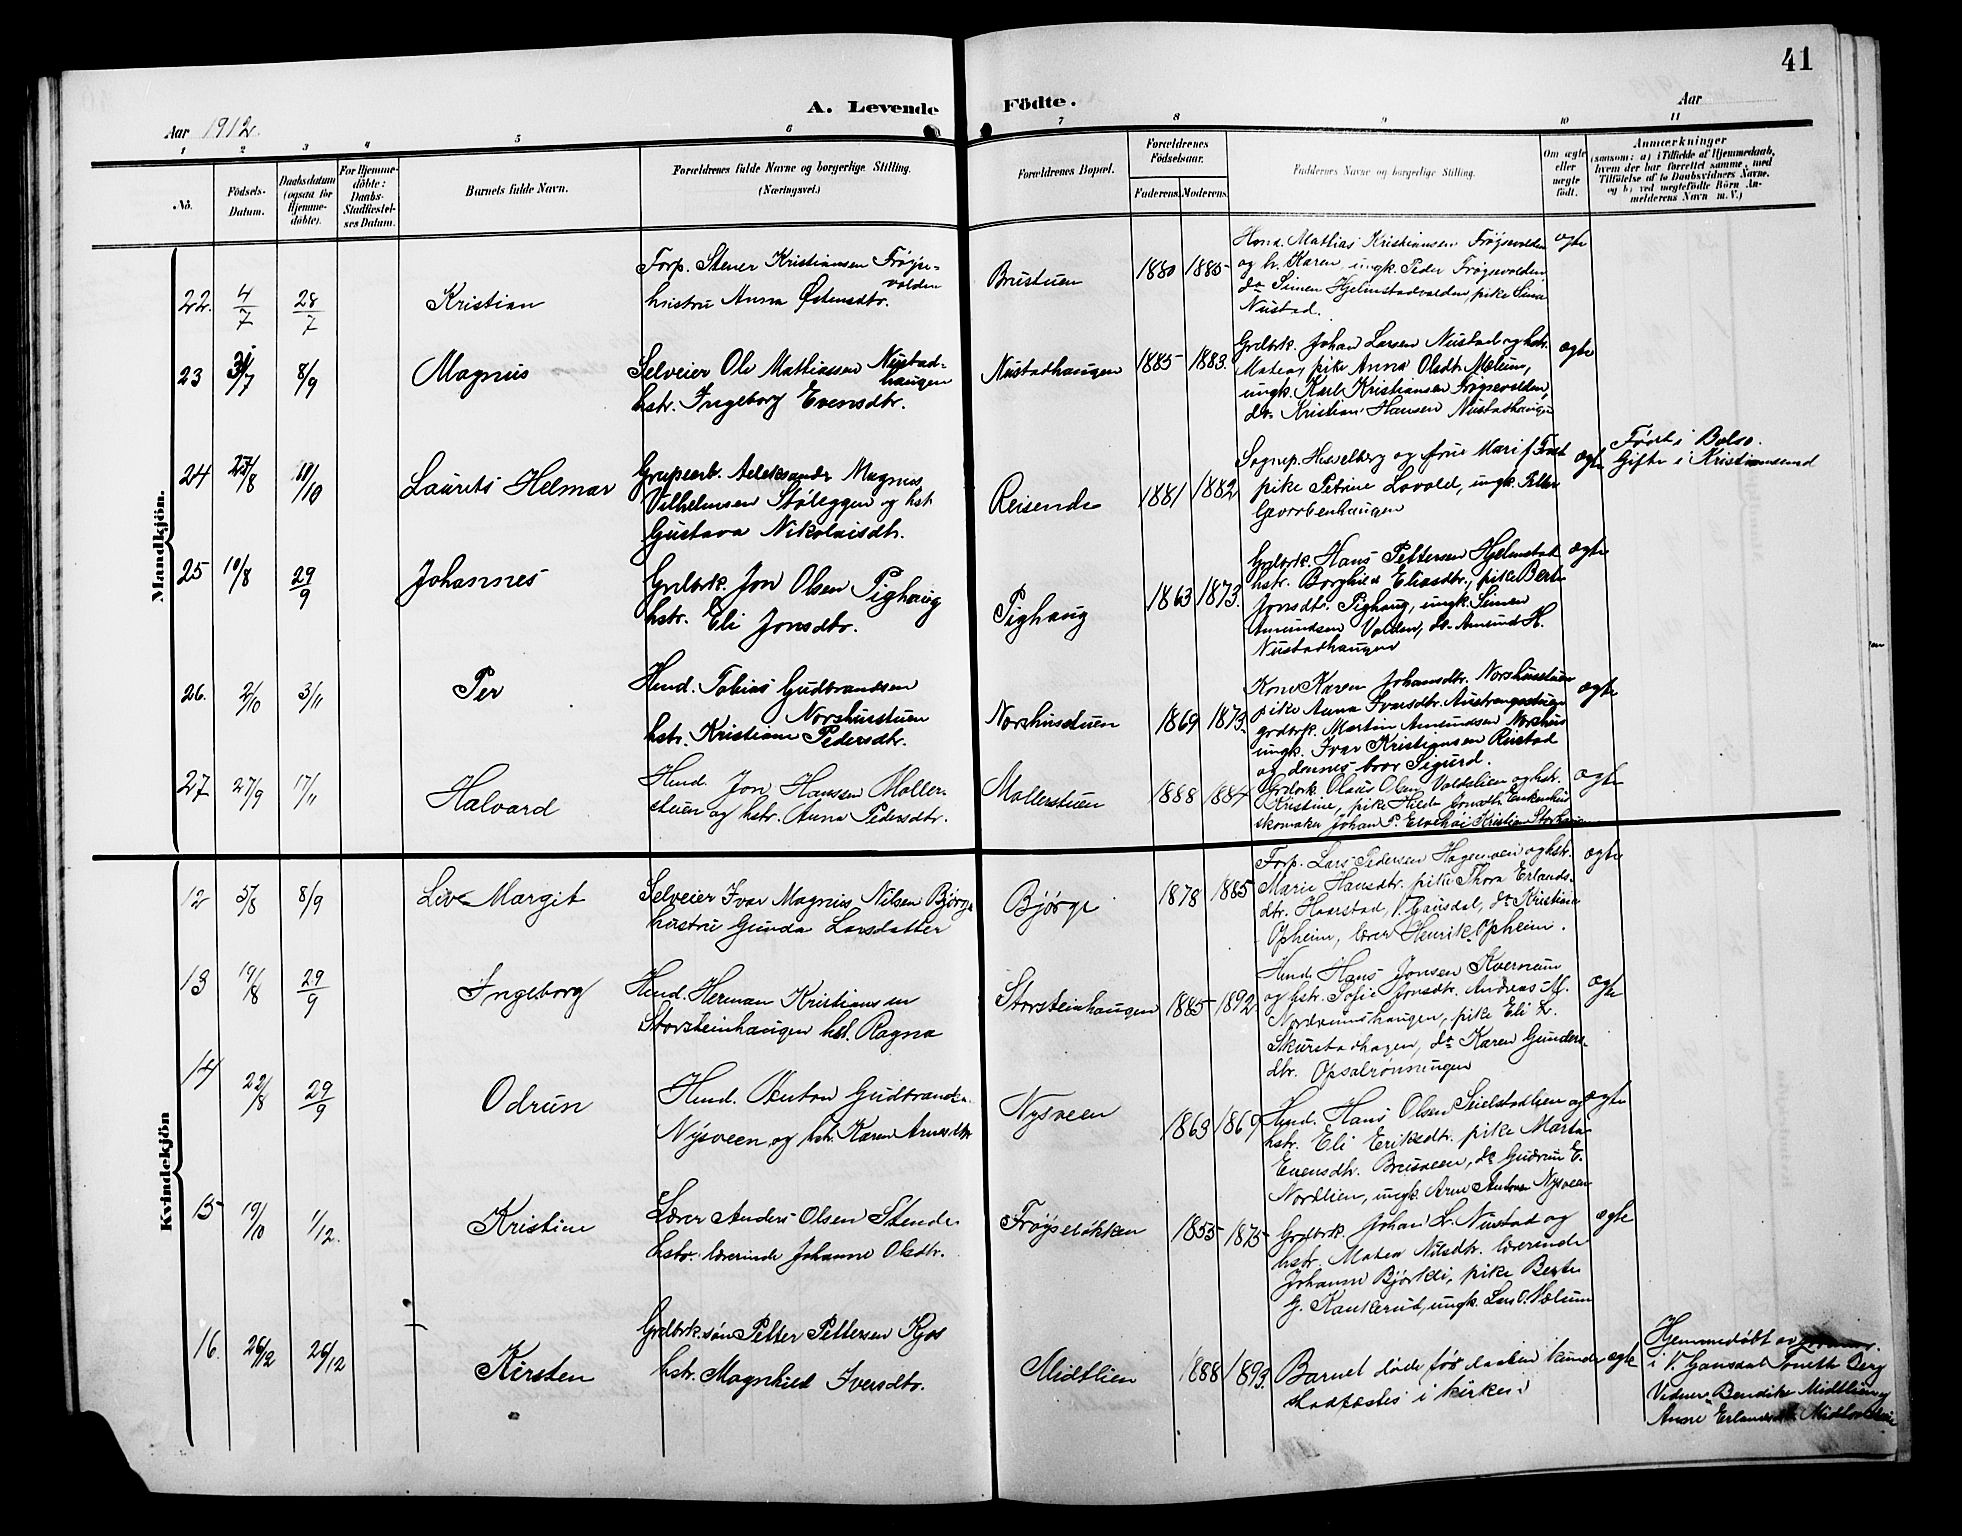 41
A. Levende Födte.
Aar 1912. Aar
1 2 3 4 5 6 7 8 9 10 11
No.
Födsels-
Datum.
Daabsdatum
(ogsaa for
Hjemme-
döbte).
For Hjemme-
döbte:
Daabs-
Stadfæstel-
ses Datum.
Barnets fulde Navn.
Forældrenes fulde Navne og borgerlige Stilling.
(Næringsvei.)
Forældrenes Bopæl.
Forældrenes
Födselsaar.
Faderens. Moderens.
Faddernes Navne og borgerlige Stilling.
Om ægte
eller
uægte
født.
Anmærkninger
(saasom: a) i Tilfælde af Hjemmedaab,
hvem der har forrettet samme, med
Tilföielse af to Daabsvidners Navne,
og b) ved uægtefödte Börn An-
melderens Navn m. V.)
Mandkjön.
22. 4/7 28/7 Kristian
Forp. Stener Kristiansen Frøyse-
volden
hustru Anna Østensdtr.
Brustuen 1880 1885
Hmd. Mathias Kristiansen Frøysevolden
og h. Karen, ungk. Peder Frøysevolden,
do Simen Hjelmstadvolden, pike Sina
Nustad.
ægte
23 31/7 8/9 Magnus
Selveier Ole Mathiassen Nustad-
haugen
hstr. Ingeborg Evensdtr.
Nustadhaugen 1885 1883.
Grdbrk. Johan Larsen Nustad og hstr.
Matea, pike Anna Olsdtr. Mælum,
ungk. Karl Kristiansen Frøysevolden,
do Kristian Hansen Nustadhaugen
ægte
24 27/8 10/10 Laurits Helmar
Grupearb. Aleksander Magnus
Vilhelmsen Støleggen og hst.
Gustava Nikolaisdtr.
Reisende 1881 1882
Sognep. Hesselberg og frue Mari f. Tost
pike Petrine Lovold, ungk. Petter
Gavrbenhaugen
ægte
Født i Bolsø.
Gifte i Kristiansund
25 10/8 29/9 Johannes
Grdbrk. Jon Olsen Pighaug
hstr. Eli Jonsdtr.
Pighaug 1863 1873.
Grdbrk. Hans Pettersen Hjelmstad
hstr. Borghild Eliasdtr., pike Berte
Jonsdtr. Pighaug, ungk. Simen
Amundsen Volden, do Amund H.
Nustadhaugen
ægte
26. 2/10 3/11 Per
Hmd. Tobias Gudbrandsen
Norshusstuen
hstr. Kristiane Pedersdtr.
Norshusstuen 1869 1873.
Kone Karen Johansdtr. Norshusstuen
pike Anna Ivarsdtr. Austvangsstuen
grdbrk. Martin Amundsen Norshus
ungk. Ivar Kristiansen Rustad
og dennes bror Sigurd.
ægte
27 27/9 17/11 Halvard
Hmd. Jon Hanssen Moller-
stuen og hstr. Anna Pedersdtr.
Mollerstuen 1888 1884
Grdbrk. Olaus Olsen Voldslien og hstr.
Kristine, pike Hilda Jonsdtr. Enkenhus
skomaker Johan P. Elvehøi Kristian Storhaugen
ægte
Kvindekjön
12 5/8 8/9 Liv Margit
Selveier Ivar Magnus Nilsen Bjørge
hustru Gunda Larsdatter
Bjørge 1878 1885
Forp. Lars Pedersen Hagemoen og hstr.
Marie Hansdtr. pike Thora Erlands-
dtr. Haarstad, V. Gausdal, do Kristiane
Opheim, lærer Henrik Opheim.
ægte
13 19/8 29/9 Ingeborg
Hmd. Herman Kristiansen
Storsteinhaugen hst. Ragna
Storsteinhaugen 1885 1892
Hmd. Hans Jonsen Kvernum
og hstr. Sofie Jonsdtr. Andreas M.
Nordrumshaugen, pike Eli L.
Skurstadhagen, do Karen Gunders-
dtr. Opsalrønningen
ægte
14 22/8 29/9 Odrun
Hmd. Anton Gudbrandsen
Nysveen og hstr. Karen Arnesdtr
Nysveen 1863 1869
Hmd. Hans Olsen Seielstadlien og
hstr. Eli Eriksdtr. pike Marta
Evensdtr. Breisveen, do Gudrun E.
Nordlien, ungk. Arne Antonsen Nysveen
ægte
15 19/10 1/12. Kristine
Lærer Anders Olsen Stende
hstr. lærerinde Johanne Olsdtr.
Frøyseløkken 1855 1875
Grdbrk. Johan L. Nustad og
hstr. Matea Nilsdtr. lærerinde
Johanne Bjørkli, pike Berte
G. Kankerud, ungk. Lars O. Mælum
ægte
16. 26/12 26/12 Kirsten
Grdbrk.søn Petter Pettersen Kjos
hstr. Magnhild Iversdtr.
Midtlien 1888 1893.
Barnet døde før daaben kunde
stadfæstes i kirken
ægte
Hjemmedøbt av
i V. Gausdal Jonetta Berg
Vidner Bendike Midtlien og
Anne Erlandsdtr. Midtvoldsie